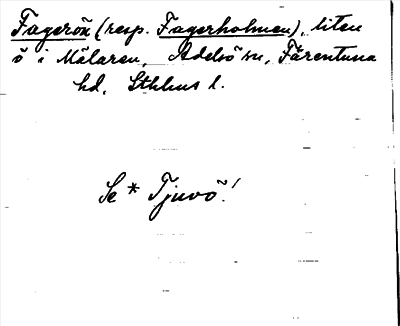 Fagerön (resp. Fagerholmen), liten
ö i Mälaren, Adelsö sn, Färentuna
hd, Sthlms l.
Se * Tjuvö!